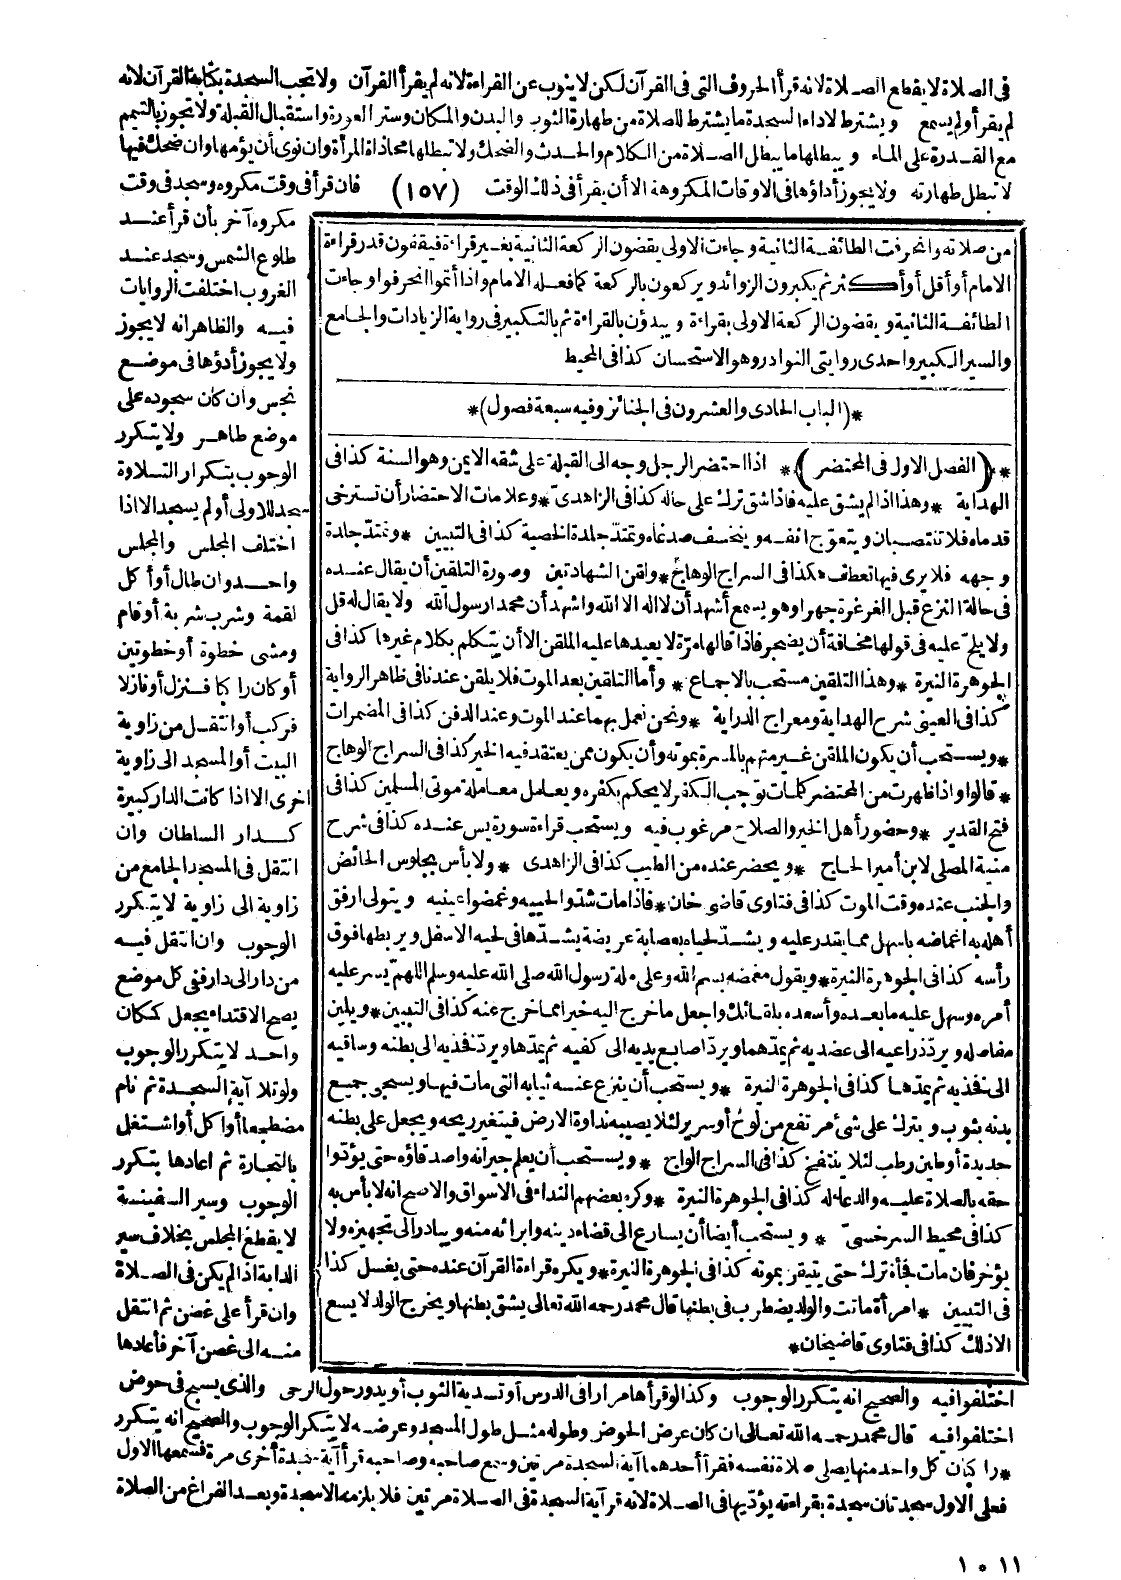 فى الصلاة لا يقطع الصلاة لانه قرأ الحروف التى فى القرآن لكن لا ينوب عن القراءة لانه لم يقرأ القرآن ولا تجب السجدة بكتابة القرآن لانه
لم يقرأ ولم يسمع ويشترط لاداء السجدة ما يشترط للصلاة من طهارة الثوب والبدن والمكان وستر العورة واستقبال القبلة ولا تجوز بالتيمم
مع القدرة على الماء ويبطلها ما يبطل الصلاة من الكلام والحدث والضحك ولا تبطلها محاذاة المرأة وان نوى أن يؤمها وان ضحك فيها
لا تبطل طهارته ولا يجوز أداؤها فى الاوقات المكروهة الا أن يقرأ فى ذلك الوقت (١٥٧) فان قرأ فى وقت مكروه وسجد فى وقت
مكروه آخر بأن قرأ عند
طلوع الشمس وسجد عند
الغروب اختلفت الروايات
فيه والظاهر انه لا يجوز
ولا يجوز أدؤها فى موضع
نجس وان كان سجوده على
موضع طاهر ولا يتكرر
الوجوب بتكرار التلاوة
سجد للاولى أو لم يسجد الا اذا
اختلف المجلس والمجلس
واحد وان طال أو أكل
لقمة وشرب شربة أو قام
ومشى خطوة أو خطوتين
أو كان راكبا فنزل أو نازلا
فركب أو انتقل من زاوية
البيت أو المسجد الى زاوية
اخرى الا اذا كانت الدار كبيرة
كدار السلطان وان
انتقل فى المسجد الجامع من
زاوية الى زاوية لا يتكرر
الوجوب وان انتقل فيه
من دار الى دار ففى كل موضع
يصح الاقتداء يجعل كمكان
واحد لا يتكرر الوجوب
ولو تلا آية السجدة ثم نام
مضطجعا أو أكل أو اشتغل
بالتجارة ثم اعادها يتكرر
الوجوب وسير السفينة
لا يقطع المجلس بخلاف سير
الدابة اذا لم يكن فى الصلاة
وان قرأ على غصن ثم انتقل
منه الى غصن آخر فأعادها
من صلاته وانحرفت الطائفة الثانية وجاءت الاولى يقضون الركعة الثانية بغير قراءة فيقفون قدر قراءة
الامام أو أقل أو أكثر ثم يكبرون الزوائد ويركعون بالركعة كما فعله الامام واذا أتموا انحرفوا وجاءت
الطائفة الثانية ويقضون الركعة الاولى بقراءة ويبدؤن بالقراءة ثم بالتكبير فى رواية الزيادات والجامع
والسير الكبير واحدى روايتى النوادر وهو الاستحسان كذا فى المحيط
*(الباب الحادى والعشرون فى الجنائز وفيه سبعة فصول)*
*(الفصل الاول فى المحتضر)* اذا احتضر الرجل وجه الى القبلة على شقه الايمن وهو السنة كذا فى
الهداية * وهذا اذا لم يشق عليه فاذا شق ترك على حاله كذا فى الزاهدىّ * وعلامات الاحتضار أن تسترخى
قدماه فلا تنتصبان ويتعوّج انفه وينخسف صدغاه وتمتدّ جلدة الخصية كذا فى التبيين * وتمتدّ جلدة
وجهه فلا يرى فيها تعطف هكذا فى السراج الوهاج * ولقن الشهادتين وصورة التلقين أن يقال عنده
فى حالة النزع قبل الغرغرة جهرا وهو يسمع أشهد أن لا اله الا الله واشهد أن محمدا رسول الله ولا يقال له قل
ولا يلحّ عليه فى قولها مخافة أن يضجر فاذا قالها مرّة لا يعيدها عليه الملقن الا أن يتكلم بكلام غيرها كذا فى
الجوهرة النيرة * وهذا التلقين مستحب بالاجماع * وأما التلقين بعد الموت فلا يلقن عندنا فى ظاهر الرواية
كذا فى العينى شرح الهداية ومعراج الدراية * ونحن نعمل بهما عند الموت وعند الدفن كذا فى المضمرات
* ويستحب أن يكون الملقن غير متهم بالمسرة بموته وأن يكون ممن يعتقد فيه الخير كذا فى السراج الوهاج
* قالوا واذا ظهرت من المحتضر كلمات توجب الكفر لا يحكم بكفره ويعامل معاملة موتى المسلمين كذا فى
فتح القدير * وحضور أهل الخير والصلاح مرغوب فيه ويستحب قراءة سورة يس عنده كذا فى شرح
منية المصلى لابن أمير الحاج * ويحضر عنده من الطيب كذا فى الزاهدى * ولا بأس بجلوس الحائض
والجنب عنده وقت الموت كذا فى فتاوى قاضى خان * فاذا مات شدّوا لحييه وغمضوا عينيه ويتولى ارفق
أهله به اغماضه باسهل مما يقدر عليه ويشدّ لحياه بعصابة عريضة يشدّها فى لحيه الاسفل ويربطها فوق
رأسه كذا فى الجوهرة النيرة * ويقول مغمضه بسم الله وعلى ملة رسول الله صلى الله عليه وسلم اللهمّ يسر عليه
أمره وسهل عليه ما بعده وأسعده بلقائك واجعل ما خرج اليه خيرا مما خرج عنه كذا فى التبيين * ويلين
مفاصله ويردّ ذراعيه الى عضديه ثم يمدّهما ويردّ اصابع يديه الى كفيه ثم يمدّها ويردّ فخذيه الى بطنه وساقيه
الى فخذيه ثم يمدّها كذا فى الجوهرة النيرة * ويستحب أن ينزع عنه ثيابه التى مات فيها ويسجى جميع
بدنه بثوب ويترك على شئ مرتفع من لوح أو سرير لئلا يصيبه نداوة الارض فيتغير ريحه ويجعل على بطنه
حديدة أو طين رطب لئلا ينتفخ كذا فى السراج الواج * ويستحب أن يعلم جيرانه واصدقاؤه حتى يؤدّوا
حقه بالصلاة عليه والدعاء له كذا فى الجوهرة النيرة * وكره بعضهم النداء فى الاسواق والاصح انه لا بأس به
كذا فى محيط السرخسىّ * ويستحب أيضا أن يسارع الى قضاء دينه وابرائه منه ويبادر الى تجهيزه ولا
يؤخر فان مات فجأة ترك حتى يتيقن بموته كذا فى الجوهرة النيرة * ويكره قراءة القرآن عنده حتى يغسل كذا
فى التبيين * امرأة ماتت والولد يضطرب فى بطنها قال محمد رحمه الله تعالى يشق بطنها ويخرج الولد لا يسع
الا ذلك كذا فى فتاوى قاضيخان *
اختلفوا فيه والصحيح انه يتكرر الوجوب وكذا لو قرأها مرارا فى الدرس أو تسدية الثوب أو يدور حول الرحى والذى يسبح فى حوض
اختلفوا فيه قال محمد رحمه الله تعالى ان كان عرض الحوض وطوله مثل طول المسجد وعرضه لا يتكرر الوجوب والصحيح انه يتكرر
* راكبان كل واحد منهما يصلى صلاة نفسه فقرأ أحدهما آية السجدة مرتين وسمع صاحبه وصاحبه قرأ آية سجدة أخرى مرة فسمعها الاول
فعلى الاول سجدتان سجدة بقراءته يؤدّيها فى الصلاة لانه قرأ آية السجدة فى الصلاة مرتين فلا يلزمه الا سجدة وبعد الفراغ من الصلاة
١٠١١